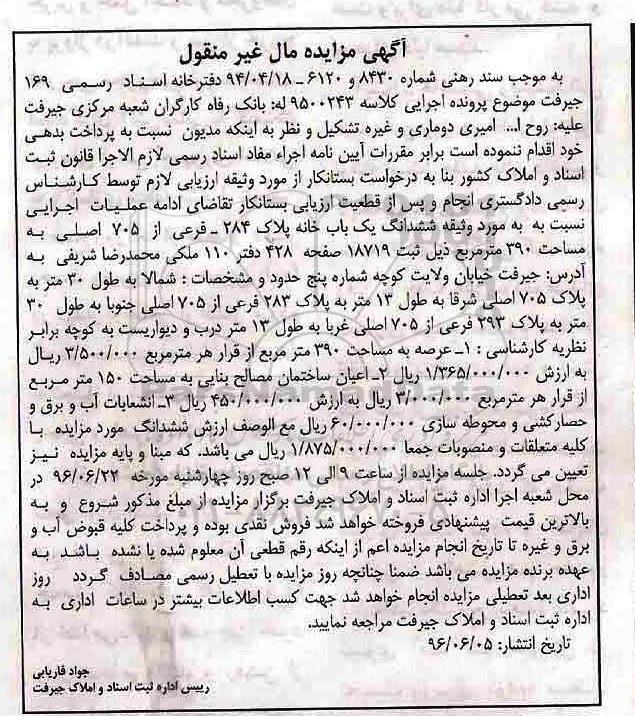 آگهی مزایده مال غیر منقول
به موجب سند رهنی شماره ۸۴۳۰ و ۶۱۲۰ ـ ۹۴/۰۴/۱۸ دفترخانه اسناد رسمی ۱۶۹
جیرفت موضوع پرونده اجرایی کلاسه ۹۵۰۰۲۴۳ له: بانک رفاه کارگران شعبه مرکزی جیرفت
علیه: روح ا... امیری دوماری و غیره تشکیل و نظر به اینکه مدیون نسبت به پرداخت بدهی
خود اقدام ننموده است برابر مقررات آیین نامه اجراء مفاد اسناد رسمی لازم الاجرا قانون ثبت
اسناد و املاک کشور بنا به درخواست بستانکار از مورد وثیقه ارزیابی لازم توسط کارشناس
رسمی دادگستری انجام و پس از قطعیت ارزیابی بستانکار تقاضای ادامه عملیات اجرایی
نسبت به به مورد وثیقه ششدانگ یک باب خانه پلاک ۲۸۴ ـ فرعی از ۷۰۵ اصلی به
مساحت ۳۹۰ مترمربع ذیل ثبت ۱۸۷۱۹ صفحه ۴۲۸ دفتر ۱۱۰ ملکی محمدرضا شریفی به
آدرس: جیرفت خیابان ولایت کوچه شماره پنج حدود و مشخصات : شمالا به طول ۳۰ متر به
پلاک ۷۰۵ اصلی شرقا به طول ۱۳ متر به پلاک ۲۸۳ فرعی از ۷۰۵ اصلی جنوبا به طول ۳۰
متر به پلاک ۲۹۳ فرعی از ۷۰۵ اصلی غربا به طول ۱۳ متر درب و دیواریست به کوچه برابر
نظریه کارشناسی : ۱ـ عرصه به مساحت ۳۹۰ متر مربع از قرار هر مترمربع ۳/۵۰۰/۰۰۰ ریال
به ارزش ۱/۳۶۵/۰۰۰/۰۰۰ ریال ۲ـ اعیان ساختمان مصالح بنایی به مساحت ۱۵۰ متر مربع
از قرار هر مترمربع ۳/۰۰۰/۰۰۰ ریال به ارزش ۴۵۰/۰۰۰/۰۰۰ ریال ۳ـ انشعابات آب و برق و
حصارکشی و محوطه سازی ۶۰/۰۰۰/۰۰۰ ریال مع الوصف ارزش ششدانگ مورد مزایده با
کلیه متعلقات و منصوبات جمعا ۱/۸۷۵/۰۰۰/۰۰۰ ریال می باشد. که مبنا و پایه مزایده نیز
تعیین می گردد. جلسه مزایده از ساعت ۹ الی ۱۲ صبح روز چهارشنبه مورخه ۹۶/۰۶/۲۲ در
محل شعبه اجرا اداره ثبت اسناد و املاک جیرفت برگزار مزایده از مبلغ مذکور شروع و به
بالاترین قیمت پیشنهادی فروخته خواهد شد فروش نقدی بوده و پرداخت کلیه قبوض آب و
برق و غیره تا تاریخ انجام مزایده اعم از اینکه رقم قطعی آن معلوم شده یا نشده باشد به
عهده برنده مزایده می باشد ضمنا چنانچه روز مزایده با تعطیل رسمی مصادف گردد روز
اداری بعد تعطیلی مزایده انجام خواهد شد جهت کسب اطلاعات بیشتر در ساعات اداری به
اداره ثبت اسناد و املاک جیرفت مراجعه نمایید.
تاریخ انتشار: ۹۶/۰۶/۰۵
جواد فاریابی
رییس اداره ثبت اسناد و املاک جیرفت